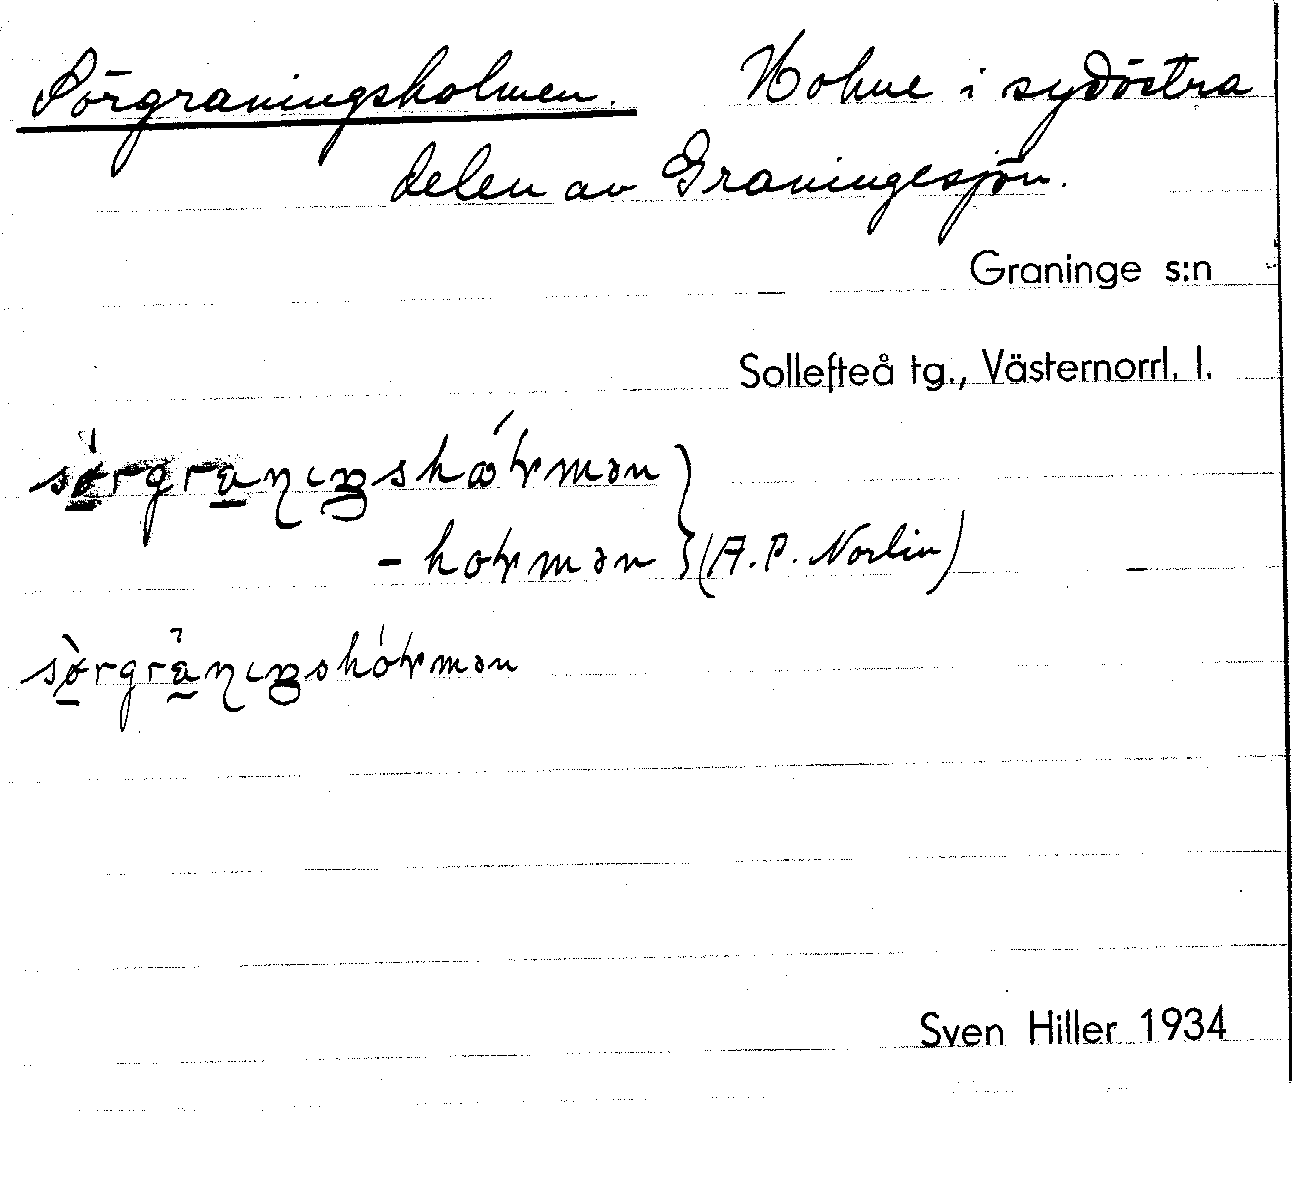 Sörgraningsholmen. Holme i sydöstra
delen av Graningesjön.
Graninge s:n
Sollefteå tg., Västernorrl. l.
(A. P. Norlin)
Sven Hiller 1934